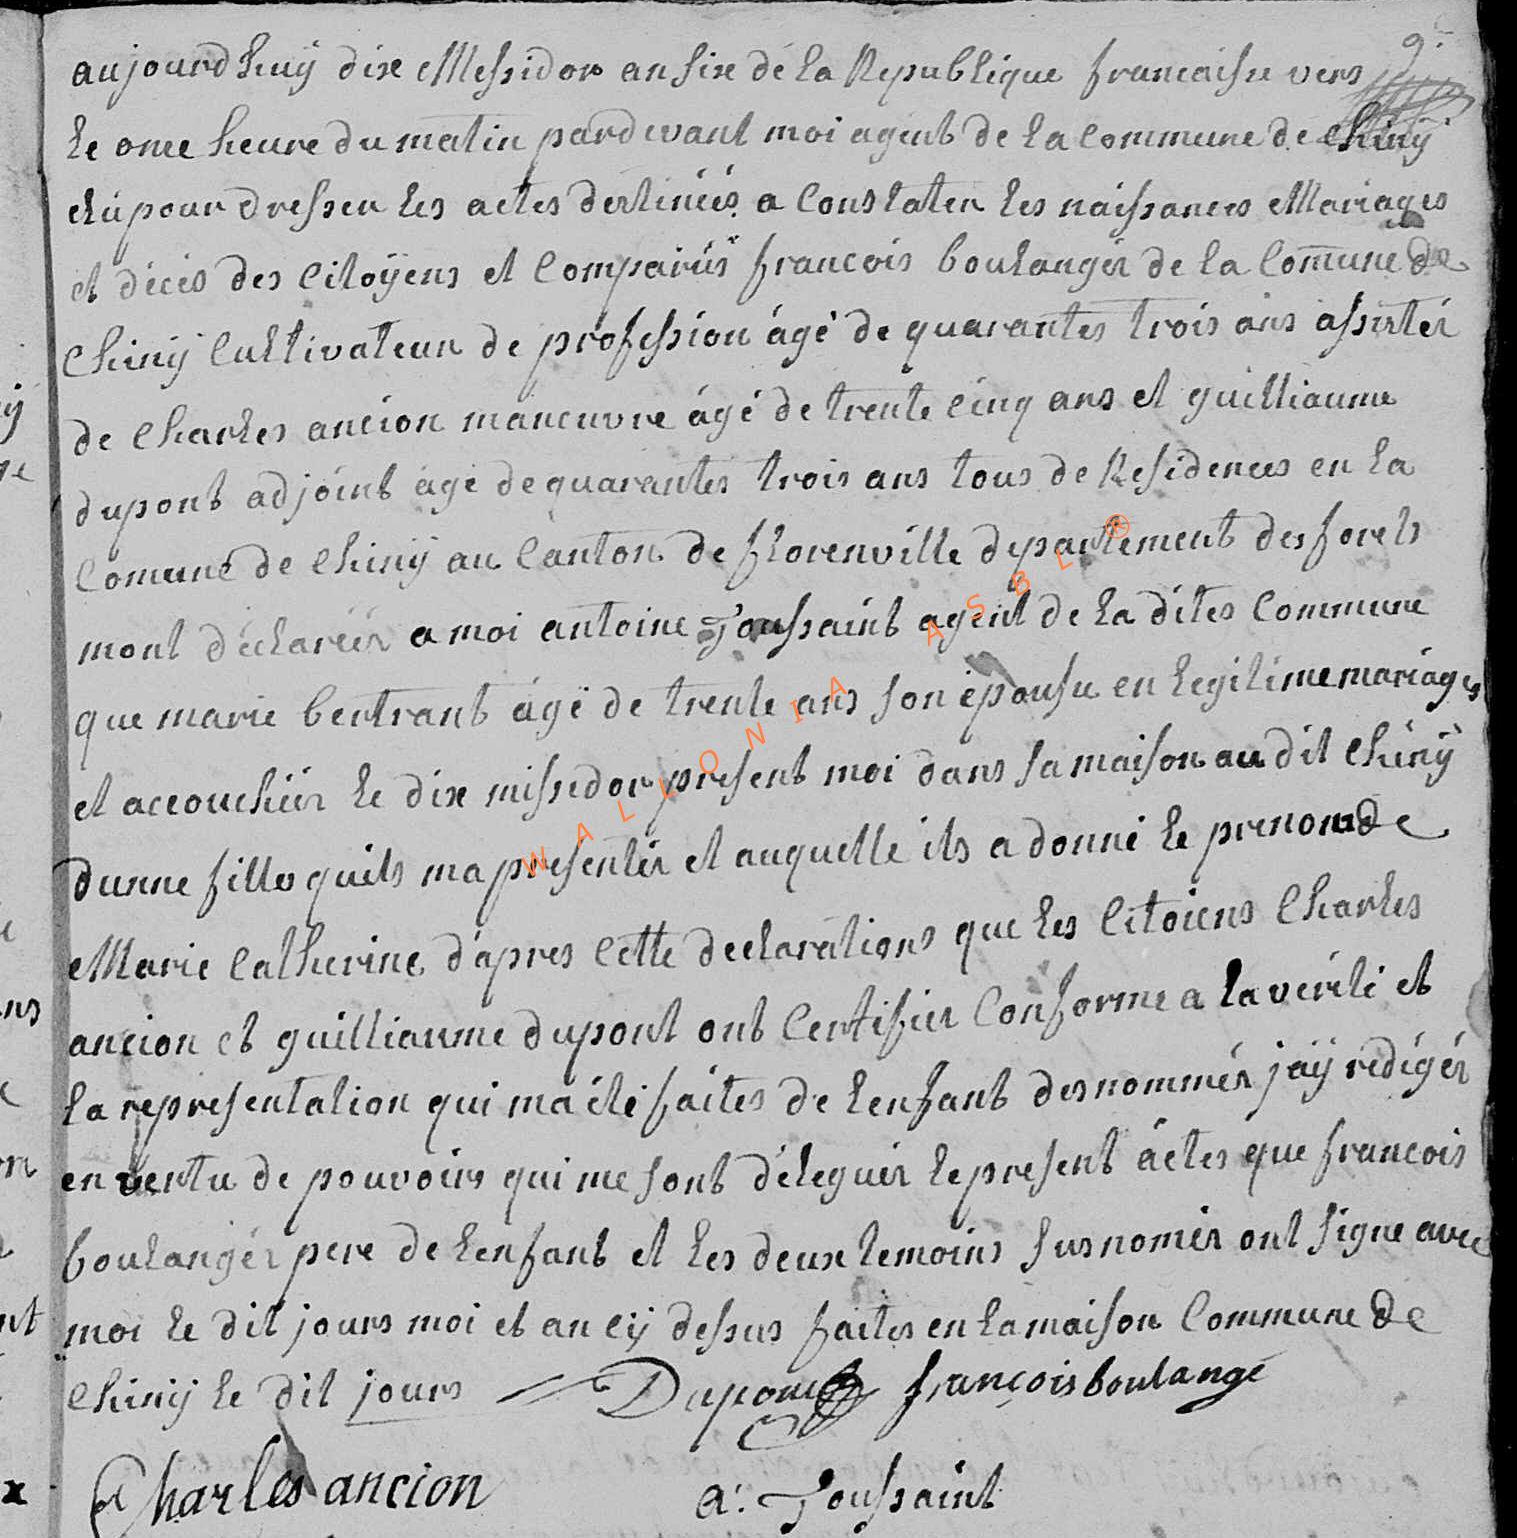 9.
aujourdhuÿ dix Messidor an six de la Republique francaise vers
le onze heure du matin pardevant moi agent de la commune de chinÿ
elu pour dresser les actes destineés a constater les naissances Mariages
et décès des citoÿens et comparüs francois boulangér de la comune de
chinÿ cultivateur de profession ágé de quarantes trois ans assistér
de charles ancion manœuvre ágé de trente cinq ans et guilliaume
dupont adjoint ágé de quarantes trois ans tous de Residences en la
comune de chinÿ au canton de florenville departement des forets
mont déclareér a moi antoine Toussaint agent de la dites commune
que marie bertrant ágé de trente ans son épouse en legitime mariages
et accouchéér le dix missidor present moi dans sa maison au dit chinÿ
dunne fille quils ma presentér et auquelle ils a donné le prenom de
Marie Catherine d'apres cette declarations que les citoiens charles
ancion et guilliaume dupont ont certifier conforme a la vérité et
la representation qui ma été faites de lenfant desnommér jaÿ redigér
en vertu de pouvoirs qui me sont déleguér le present áctes que francois
boulangér pere de lenfant et les deux temoins susnomér ont signe avec
moi le dit jours moi et an cÿ dessus faites en la maison commune de
chinÿ le dit jours Dupont françois boulangé
Charles ancion a: Toussaint
WALLONIA ASBL ®